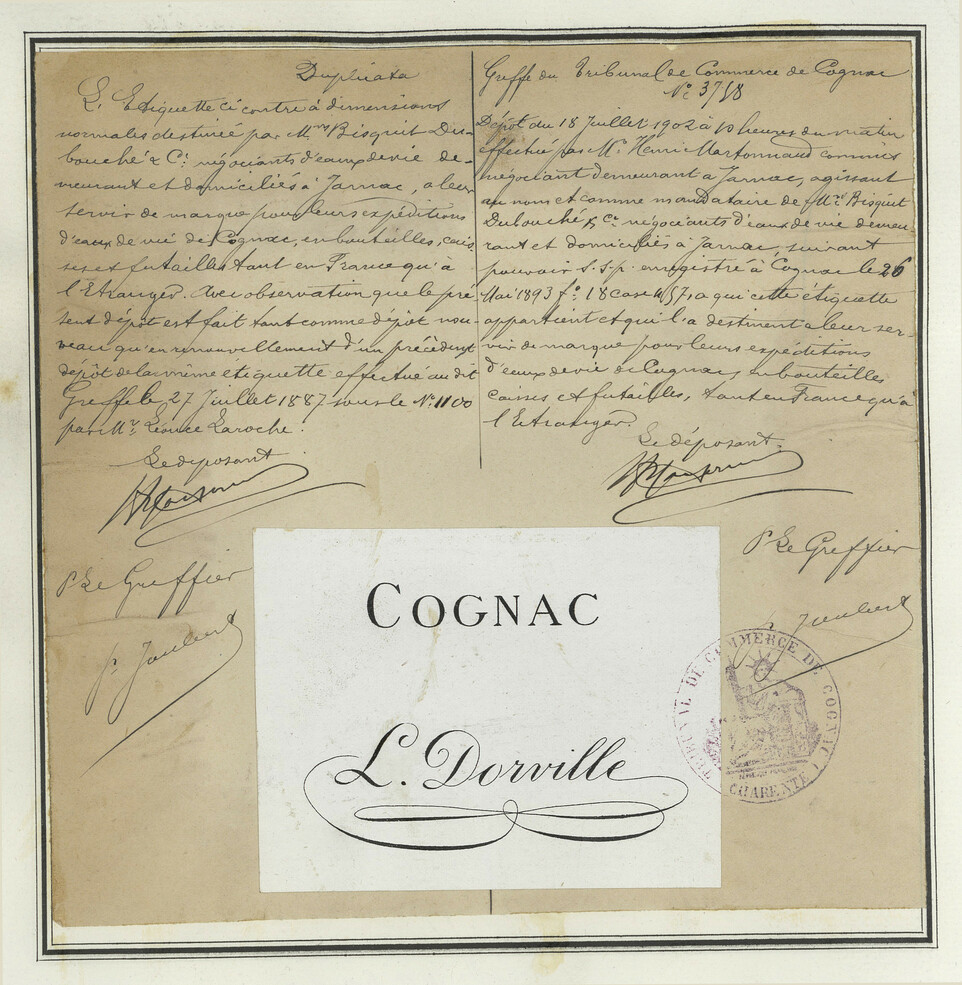 Duplicata
L'Etiquette ci contre à dimensions
normales destinée par Mrs Bisquit Du-
bouché & Cie négociants d'eaux de vie de-
meurant et domiciliés à Jarnac, a leur
servir de marque pour leurs expéditions
d'eaux de vie de Cognac, en bouteilles, cais-
ses et futailles tant en France qu'à
l'Etranger. Avec observation que le pré-
sent dépôt est fait tant comme dépôt nou-
veau qu'en renouvellement d'un précédent
dépôt de la même etiquette effectué au dit
Greffe le 27 Juillet 1887 sous le No 1100
par Mr Léonce Laroche.
Le déposant
Pr Le Greffier
Joubert
Greffe du Tribunal de Commerce de Cognac
No 3758
Dépôt du 18 Juillet 1902 à 10 heures du matin
effectué par Mr Henri Martonnaud commis
négociant demeurant à Jarnac, agissant
au nom et comme mandataire de Mrs Bisquit
Dubouché & Cie négociants d'eaux de vie demeu-
rant et domiciliés à Jarnac, suivant
pouvoir S.S.p. enregistré à Cognac le 26
Mai 1893 fo 18 case 457, a qui cette étiquette
appartient et qui l'a destinent a leur ser-
vir de marque pour leurs expéditions
d'eaux de vie de Cognac, en bouteilles
caisses et futailles, tant en France qu'à
l'Etranger.
Le déposant
Pr Le Greffier
Joubert
COGNAC
L. Dorville
TRIBUNAL DE COMMERCE DE COGNAC
CHARENTE